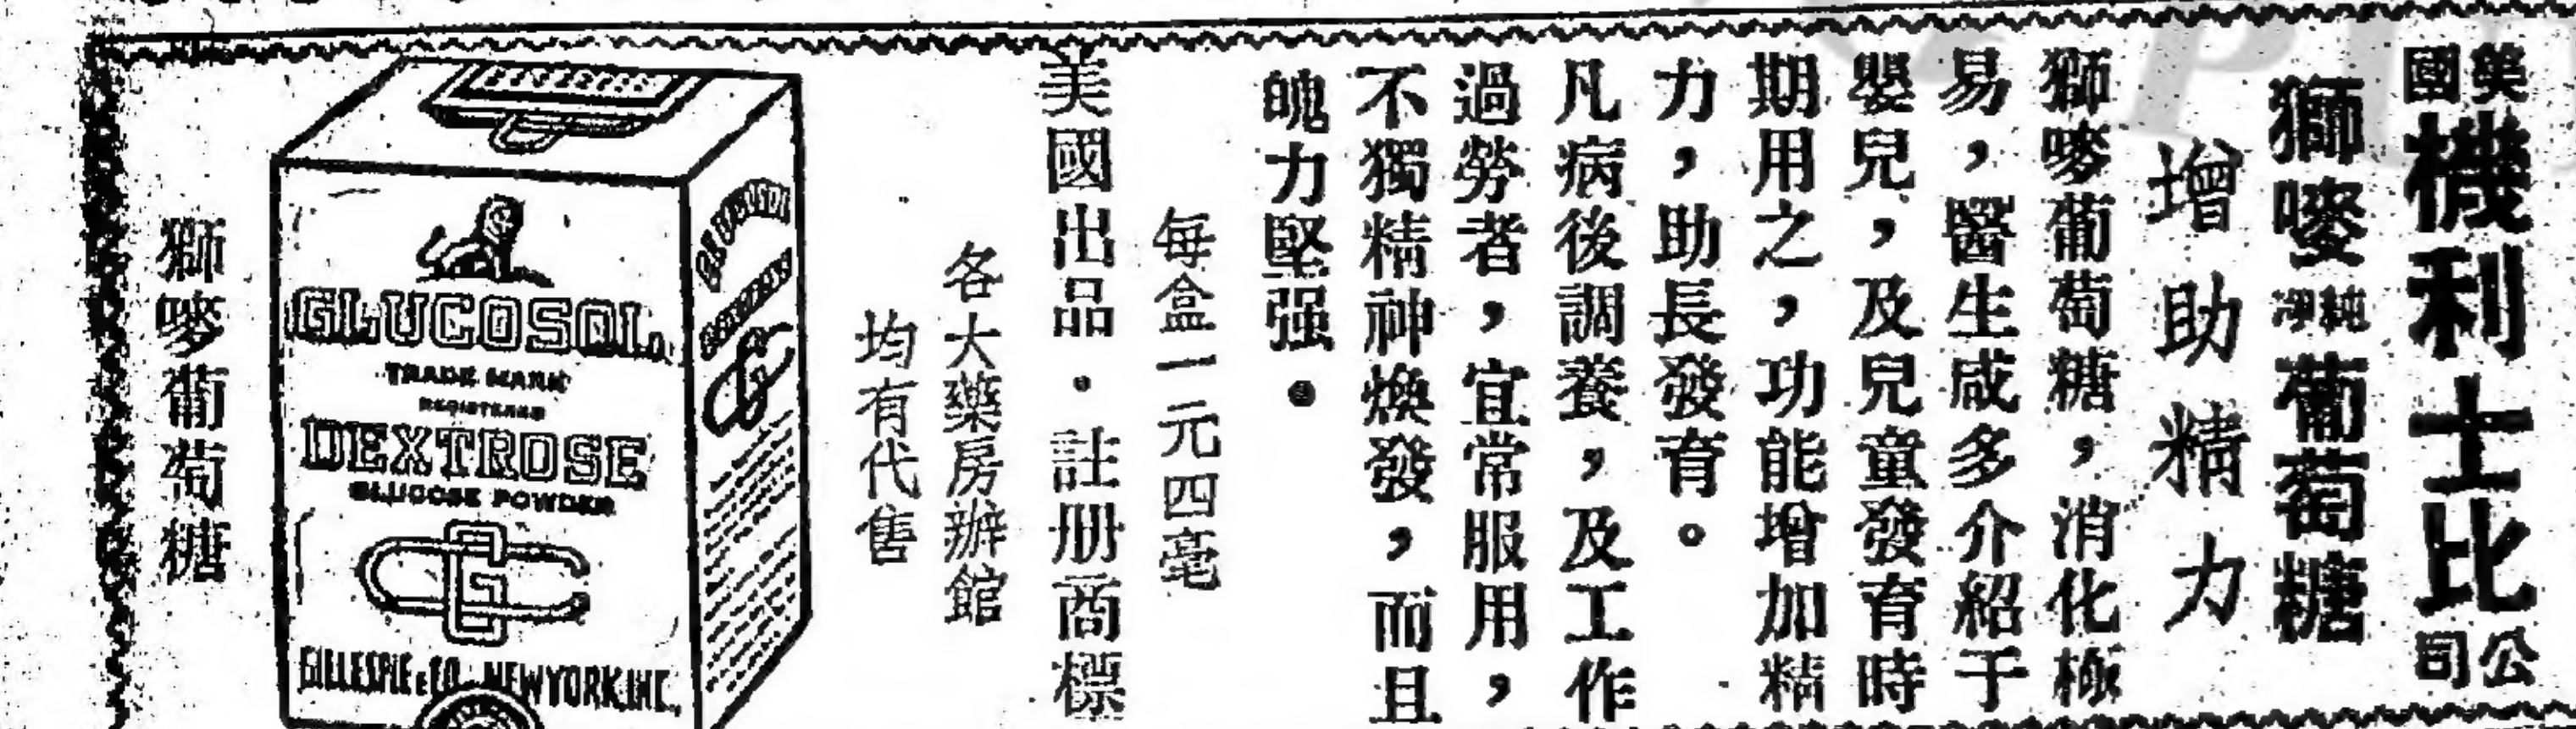 美國機利士比公司
獅嘜純淨葡萄糖
增助精力
獅嘜葡萄糖，消化極
易，醫生咸多介紹于
嬰兒，及兒童發育時
期用之，功能增加精
力，助長發育。
凡病後調養，及工作
過勞者，宜常服用，
不獨精神煥發，而且
魄力堅强。
每盒一元四毫
美國出品．註册商標
各大藥房辦館
均有代售
GLUCOSOL
TRADE MARK
REGISTERED
DEXTROSE
GLUCOSE POWDER
GILLESPIE & CO. NEW YORK INC.
GLUCOSOL
獅嘜葡萄糖